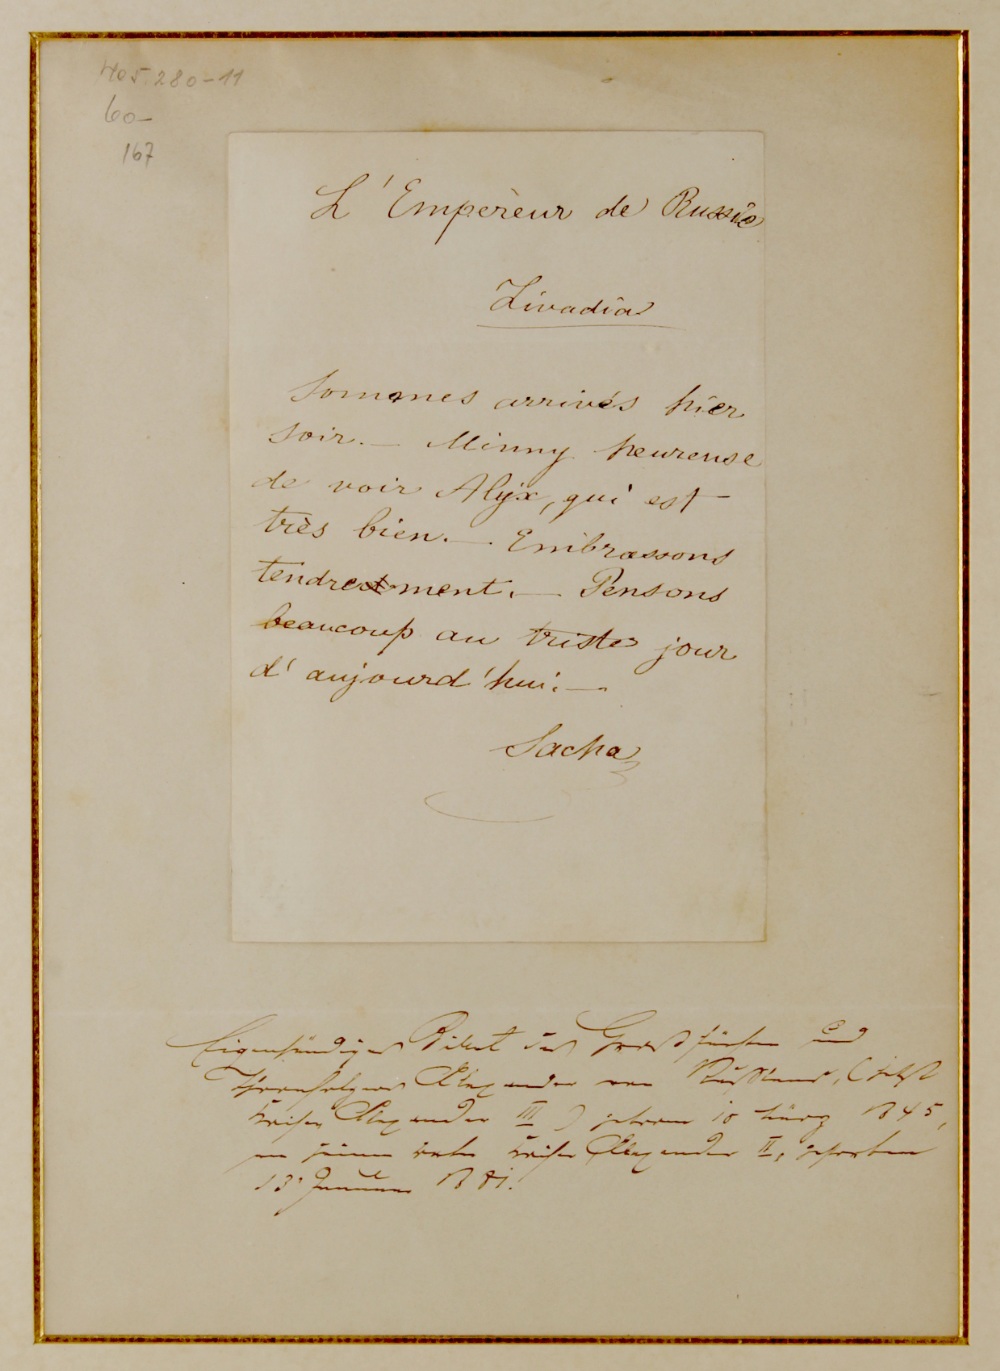 405.280-11
60-
167
L'Emperèur de Russie
Livadia
Sommes arrivés hier
soir. — Minny heureuse
de voir Alix, qui est
très bien. — Embrassons
tendrement. — Pensons
beaucoup au triste jour
d'aujourd'hui. —
Sacha
Eigenhändiges Billet des Großfürsten und
Thronfolgers Alexander von Russland, (jetzt
Kaiser Alexander III) geboren 10 März 1845,
an seinen Vater Kaiser Alexander II, gestorben
13. 1881.